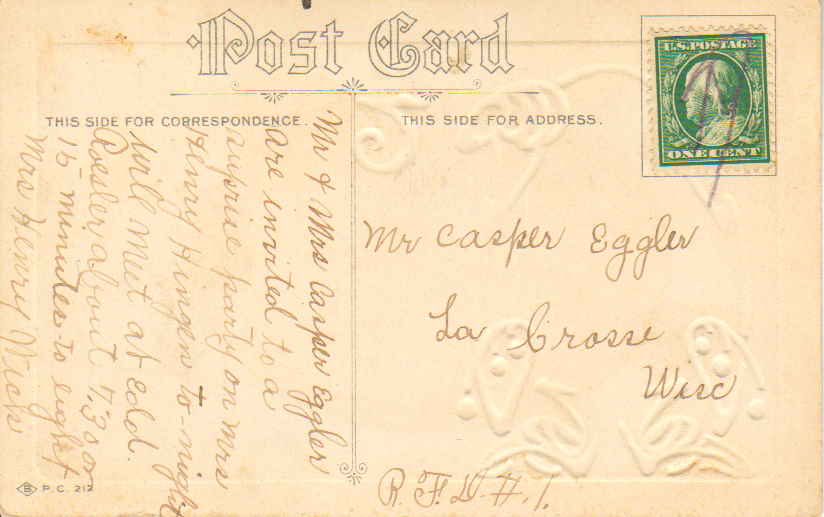 Post Card
THIS SIDE FOR CORRESPONDENCE.
THIS SIDE FOR ADDRESS.
U.S. POSTAGE
ONE CENT
Mr & Mrs Casper Eggler
are invited to a
suprise party on Mrs
Henry Hingen to-night
will met at edd.
Roesler about 7.30 or
15 minutes to eight
Mrs Henry Nick
Mr Casper Eggler
La Crosse
Wisc
R.F.D. #.1.
P.C. 212